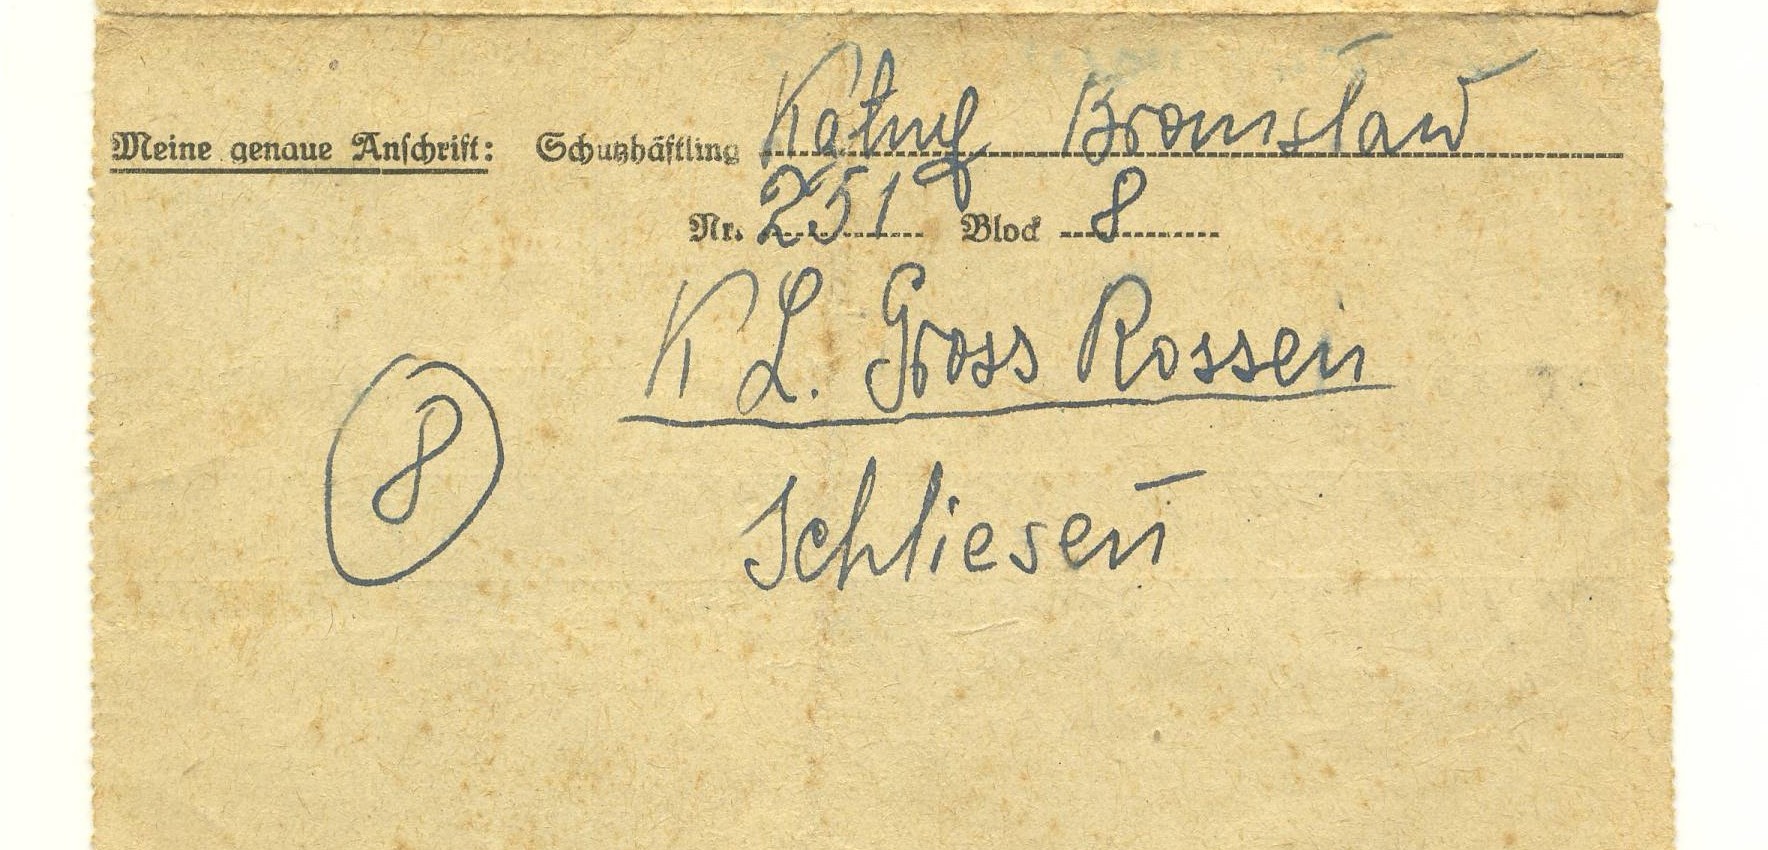 Meine genaue Anschrift: Schutzhäftling Bronisław
Nr. 251 Block 8
K L. Gross Rossen
8
Schliesen